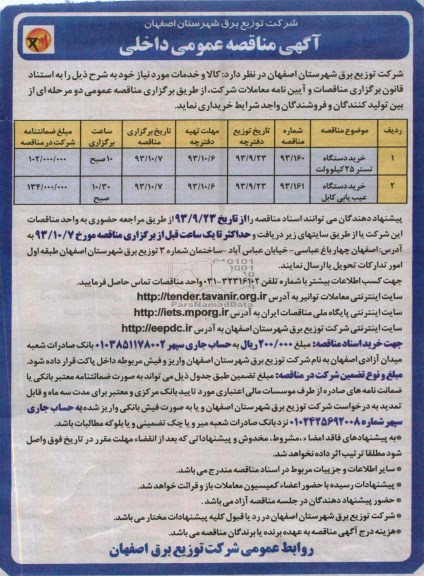 شرکت توزیع برق شهرستان اصفهان
آگهی مناقصه عمومی داخلی
شرکت توزیع برق شهرستان اصفهان در نظر دارد: کالا و خدمات مورد نیاز خود به شرح ذیل را به استناد
قانون برگزاری مناقصات و آیین نامه معاملات شرکت، از طریق برگزاری مناقصه عمومی دو مرحله ای از
بین تولید کنندگان و فروشندگان واجد شرایط خریداری نماید.
ردیف موضوع مناقصه شماره مناقصه تاریخ توزیع دفترچه مهلت تهیه دفترچه تاریخ برگزاری مناقصه ساعت برگزاری مبلغ ضمانتنامه شرکت در مناقصه
۱ خرید دستگاه تستر ۲۵ کیلوولت ۹۳/۱۶۰ ۹۳/۹/۲۳ ۹۳/۱۰/۶ ۹۳/۱۰/۷ ۱۰ صبح ۱۰۲/۰۰۰/۰۰۰
۲ خرید دستگاه عیب یابی کابل ۹۳/۱۶۱ ۹۳/۹/۲۳ ۹۳/۱۰/۶ ۹۳/۱۰/۷ ۱۰/۳۰ صبح ۱۳۴/۰۰۰/۰۰۰
پیشنهاد دهندگان می توانند اسناد مناقصه را از تاریخ ۹۳/۹/۲۳ از طریق مراجعه حضوری به واحد مناقصات
این شرکت یا از طریق سایتهای زیر دریافت و حداکثر تا یک ساعت قبل از برگزاری مناقصه مورخ ۹۳/۱۰/۷ به
آدرس: اصفهان چهارباغ عباسی - خیابان عباس آباد - ساختمان شماره ۳ توزیع برق شهرستان اصفهان طبقه اول
امور تدارکات تحویل یا ارسال نمایند.
جهت کسب اطلاعات بیشتر با شماره تلفن ۳۲۲۱۶۱۰۲-۰۳۱ واحد مناقصات تماس حاصل فرمایید.
سایت اینترنتی معاملات توانیر به آدرس http://tender.tavanir.org.ir
سایت اینترنتی پایگاه ملی مناقصات ایران به آدرس http://iets.mporg.ir
سایت اینترنتی شرکت توزیع برق شهرستان اصفهان به آدرس http://eepdc.ir
ParsNamadData
جهت خرید اسناد مناقصه: مبلغ ۲۰۰/۰۰۰ ریال به حساب جاری سپهر ۰۱۰۳۸۵۱۱۷۸۰۰۲ بانک صادرات شعبه
میدان آزادی اصفهان به نام شرکت توزیع برق شهرستان اصفهان واریز و فیش مربوطه داخل پاکت قرار داده شود.
مبلغ و نوع تضمین شرکت در مناقصه: مبلغ تضمین طبق جدول ذیل می تواند به صورت ضمانتنامه معتبر بانکی یا
ضمانت نامه های صادره از طرف موسسات مالی اعتباری مورد تایید بانک مرکزی و معتبر برای مدت سه ماه و قابل
تمدید به درخواست شرکت توزیع برق شهرستان اصفهان و یا به صورت فیش بانکی واریز شده به حساب جاری
سپهر شماره ۰۱۰۲۴۲۵۶۹۲۰۰۸ نزد بانک صادرات شعبه میر و یا چک تضمینی و یا بلوکه مطالبات باشد.
*به پیشنهادهای فاقد امضاء، مشروط، مخدوش و پیشنهاداتی که بعد از انقضاء مهلت مقرر در تاریخ فوق واصل
شود مطلقا ترتیب اثر داده نخواهد شد.
* سایر اطلاعات و جزییات مربوط در اسناد مناقصه مندرج می باشد.
* پیشنهادات رسیده با حضور اعضاء کمیسیون معاملات باز و قرائت خواهد شد.
* حضور پیشنهاد دهندگان در جلسه مناقصه آزاد می باشد.
* شرکت توزیع برق شهرستان اصفهان در رد یا قبول کلیه پیشنهادات مختار می باشد.
*هزینه درج آگهی مناقصه به عهده برنده یا برندگان مناقصه می باشد.
روابط عمومی شرکت توزیع برق اصفهان